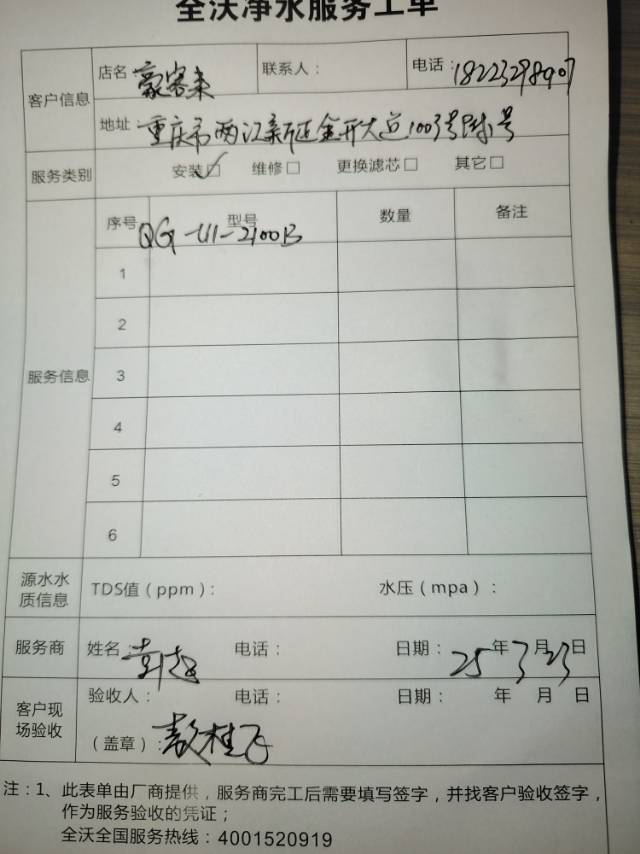 全沃净水服务工单
客户信息 店名：豪客来 联系人： 电话：18223298907
地址 重庆市两江新区金开大道1003号附 号
服务类别 安装☑ 维修□ 更换滤芯□ 其它□
服务信息 序号 型号 数量 备注
QG-U1-2100B
1
2
3
4
5
6
源水水质信息 TDS值（ppm）： 水压（mpa）：
服务商 姓名： 电话： 日期：25年3月23日
客户现场验收 验收人： 电话： 日期： 年 月 日
（盖章）：敖桂飞
注：1、此表单由厂商提供，服务商完工后需要填写签字，并找客户验收签字，
作为服务验收的凭证；
全沃全国服务热线：4001520919